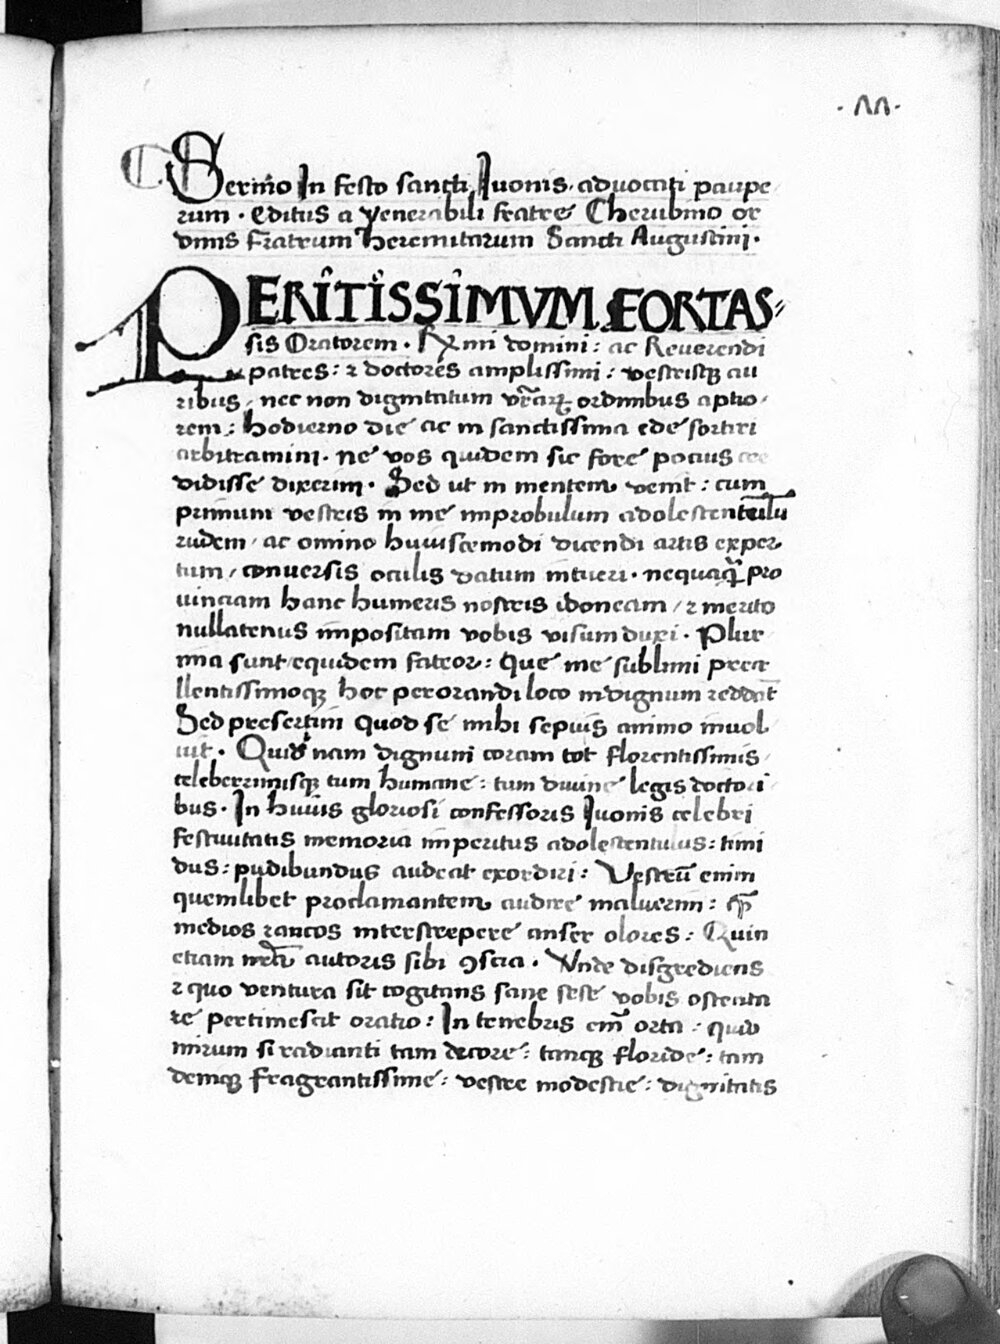 ·22·
Sermo In festo sancti Iuonis. aduocati paupe
rum · editus a venerabili fratre Cherubino or
dinis Fratrum heremitarum Sancti Augustini.
PERITISSIMVM FORTAS=
sis Oratorem · Rx̄mi domini: ac Reuerendi
patres: ⁊ doctores amplissimi: vestrisqꝫ au
ribus, nec non dignitatum vr̄arꝝ ordinibus aptio
rem: hodierno die ac in sanctissima ede sortiri
arbitramini. ne vos quidem sic fore pocius cre
didisse dixerim. Sed ut in mentem venit: cum
primum vestris in me improbulum adolescentulū
rudem, ac omino huiuscemodi dicendi artis exper
tum, conuersis oculis datum intueri. nequaꝗ̄ pro
uinciam hanc humeris nostris idoneam, ⁊ merito
nullatenus impositam vobis visum duxi. Plur
ima sunt equidem fateor: Que me sublimi prece
llentissimoqꝫ hoc perorandi loco indignum reddāt
Sed presertim quod se mihi sepius animo inuol
uit. Quid nam dignum coram tot florentissimis
celeberrimisqꝫ tum humane: tum diuine legis doctori
bus. In huius gloriosi confessoris Iuonis celebri
festiuitatis memoria imperitus adolescentulus: timi
dus: pudibundus audeat exordiri: Vestrū enim
quemlibet proclamantem audire maluerim: ꝙ̄
medios raucos interstrepere anser olores: Quin
etiam autoris sibi ꝯscia. Vnde disgrediens
⁊ quo ventura sit cogitans sane sese vobis ostenta
re pertimescit oratio: In tenebris em̄ orta: quid
mirum si radianti tam decore: tanqꝫ floride: tam
demqꝫ fragrantissime: vestre modestie: dignitatis